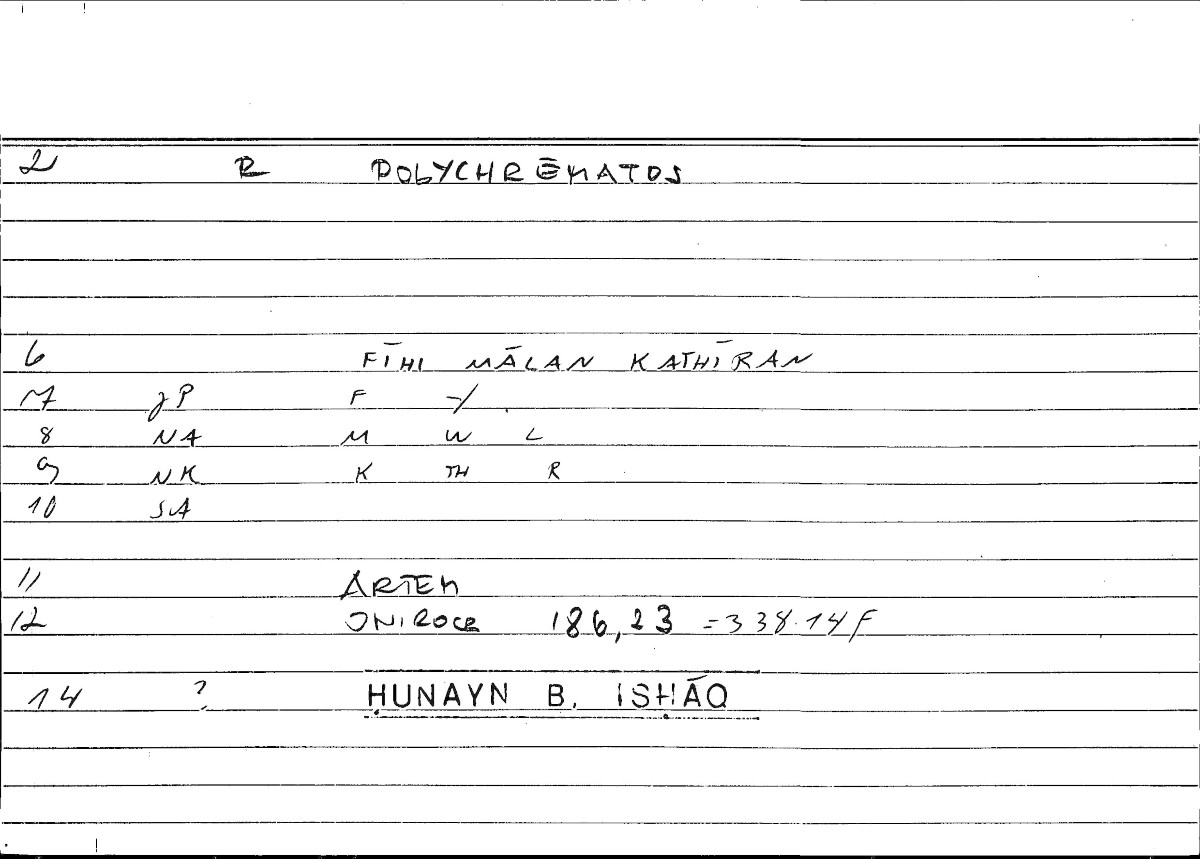 2 R POLYCHRĒMATOS
6 FĪHI MĀLAN KATHĪRAN
7 gP F -/
8 NA M W L
9 NK K TH R
10 SA
11 ARTEM
12 ONIROCR 186,23 = 338.14F
14 ? ḤUNAYN B. ISḤĀQ